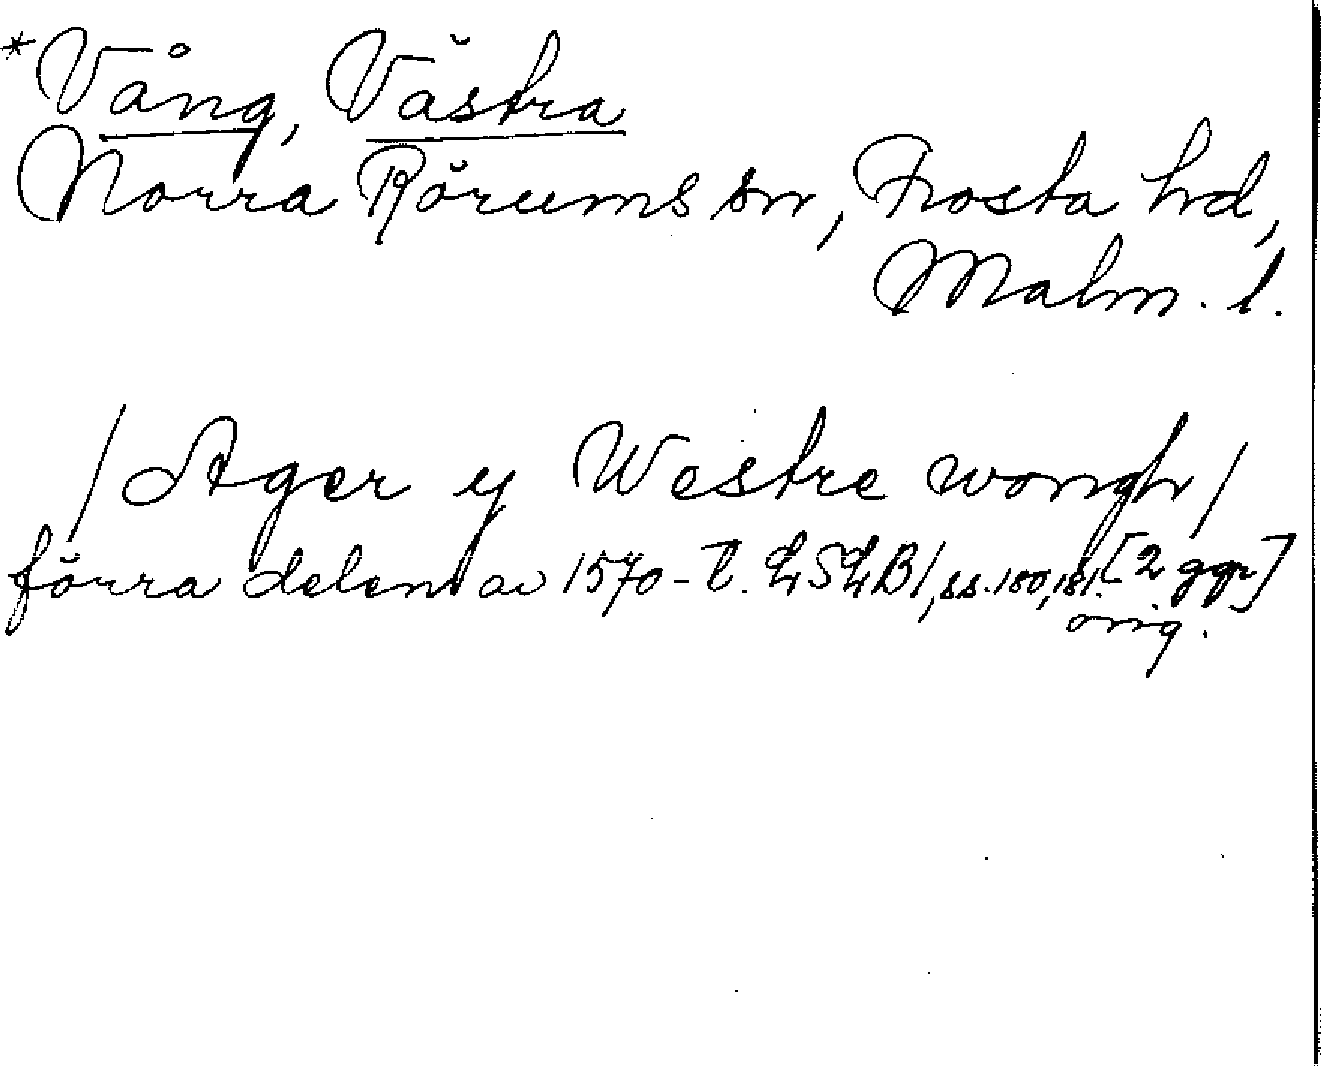 *Vång, Västra
Norra Rörums sn, Frosta hd,
Malm. l.
/ Ager y Westre wongh /
förra delen av 1570-t. LSLB1, ss. 180, 181. [2 ggr]
orig.